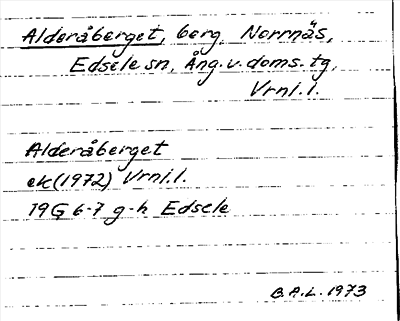 Alderåberget, berg, Norrnäs,
Edsele sn, Ång. v. doms. tg,
Vrnl. l.
Alderåberget
ek (1972) Vrnl. l.
19G 6-7 g-h Edsele
B.A.L. 1973